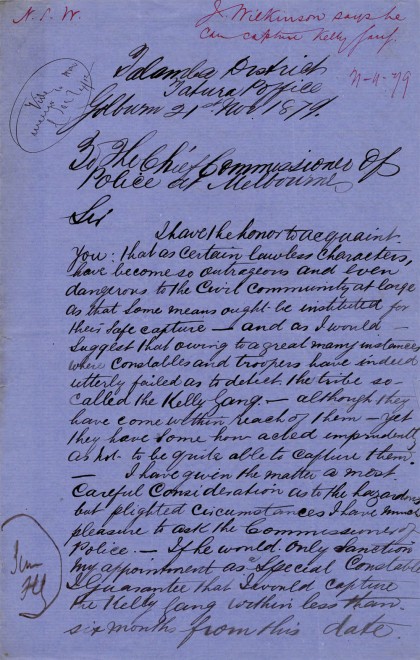 N. S. W.
J. Wilkinson says he
can capture Kelly Gang.
21-11-79
Talamba District
Tatura P Office
Golburn 21st Nov. 1879.
To The Chief Commissioner of
Police at Melbourne
Sir
I have the honor to acquaint
You: that as certain lawless characters,
have become so outrageous and even
dangerous to the Civil Community at large
as that some means ought be instituted for
their safe capture — and as I would —
Suggest that owing to a great many instances
where Constables and troopers have indeed
utterly failed as to detect the tribe so-
called the Kelly Gang — although they
have come within reach of them — yet
they have some how acted imprudently
as not to be quite able to capture them
— I have given the matter a most
Careful Consideration as to the hazardous
but plighted circumstances I have much
pleasure to ask the Commissioner of
Police. — If he would only sanction
my appointment as Special Constable
I Guarantee that I would capture
the Kelly Gang within less than
six months from this date.